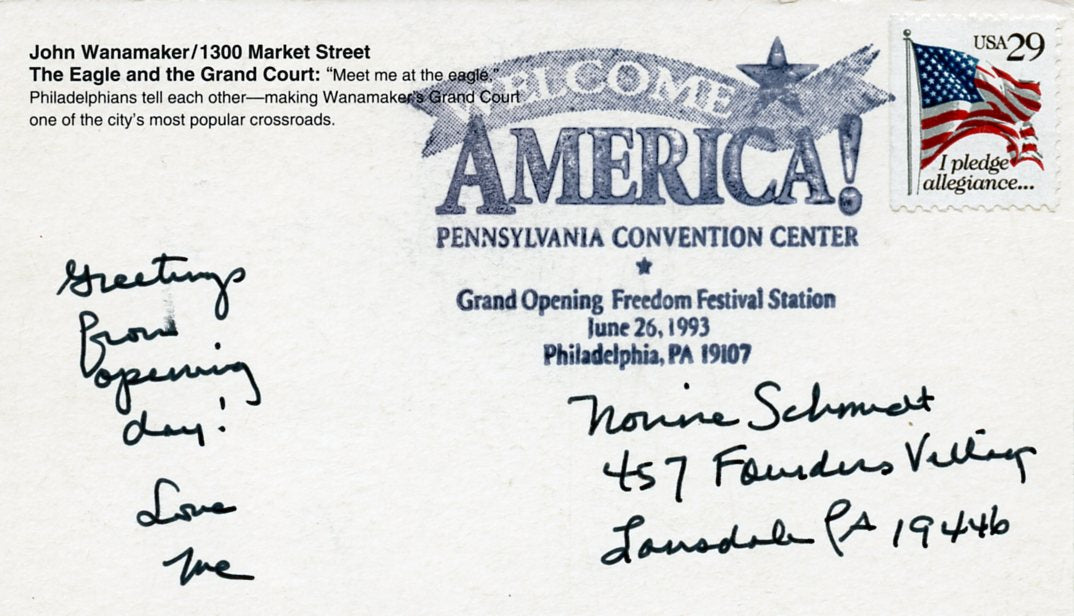 John Wanamaker/1300 Market Street
The Eagle and the Grand Court: “Meet me at the eagle,”
Philadelphians tell each other—making Wanamaker's Grand Court
one of the city's most popular crossroads.
WELCOME
AMERICA!
PENNSYLVANIA CONVENTION CENTER
Grand Opening Freedom Festival Station
June 26, 1993
Philadelphia, PA 19107
USA 29
I pledge
allegiance...
Greetings
from
opening
day!
Love
Me
Norine Schmidt
457 Founders Village
Lansdale PA 19446